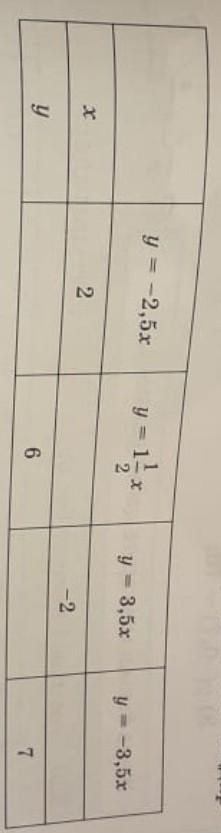 y = -2,5x y = 1 1/2 x y = 3,5x y = -3,5x
x 2 -2
y 6 7